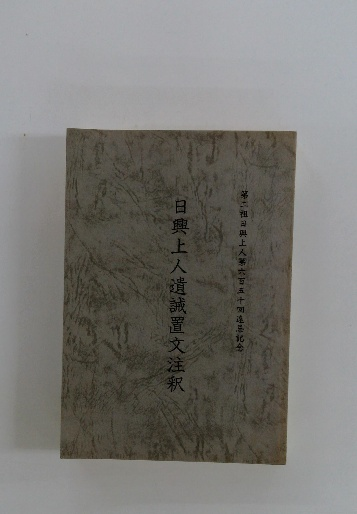 第二祖日興上人第六百五十回遠忌記念
日興上人遺誡置文注釈